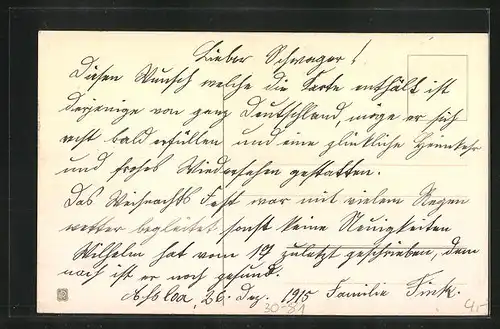 Lieber Schwager!
Diesen Wunsch welche die Karte enthält ist
derjenige von ganz Deutschland, möge er sich
recht bald erfüllen und eine glückliche Heimkehr
und frohes Wiedersehen gestatten.
Das Weihnachts Fest war mit vielem Regen
wetter begleitet, sonst keine Neuigkeiten
Wilhelm hat vom 19 zuletzt geschrieben, dem
nach ist er noch gesund.
26. Dez. 1915 Familie Fink.
30-81